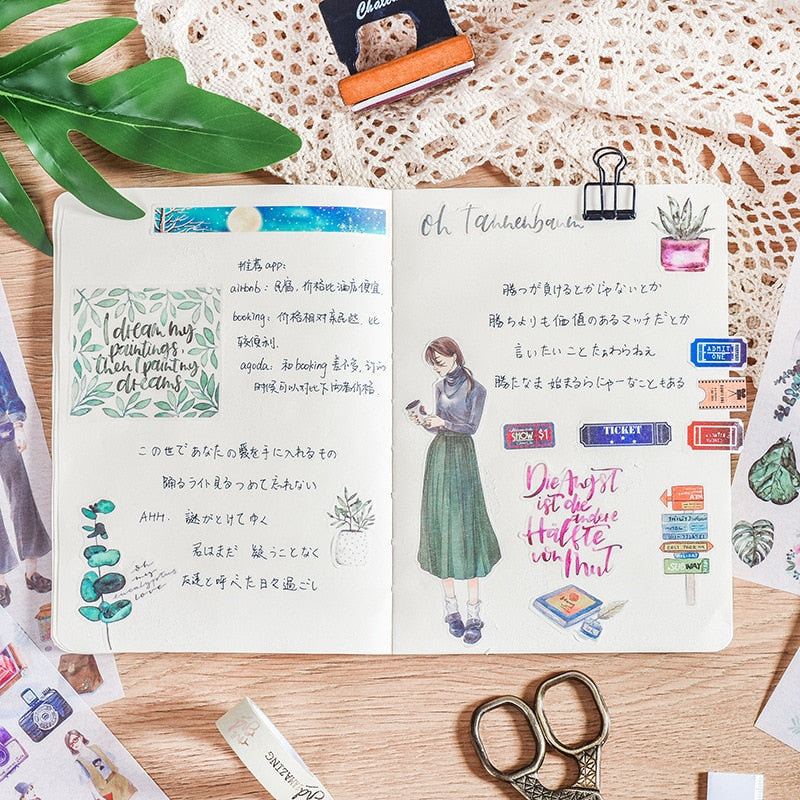 推荐app:
airbnb: 民宿, 价格比酒店便宜.
booking: 价格相对亲民些, 比
较便利.
agoda: 和booking差不多, 订的
时候可以对比下两者价格.
I dream my
paintings,
then I paint my
dreams
この世であなたの愛を手に入れるもの
踊るライト見るつめて忘れない
AHH. 謎がとけてゆく
君はまだ 疑うことなく
友達と呼べた日々過ごし
oh
my
eucalyptus
love
oh Tannenbaum
勝つが負けるとかじゃないとか
勝ちよりも価値のあるマッチだとか
言いたいことたぁわらねえ
勝たなま始まるらにゃーなこともある
ADMIT
ONE
SHOW $1
TICKET
Die Angst
ist die
andere
Hälfte
von Mut
EASY PARKING
HOLIDAY
SUBWAY
AMAZING